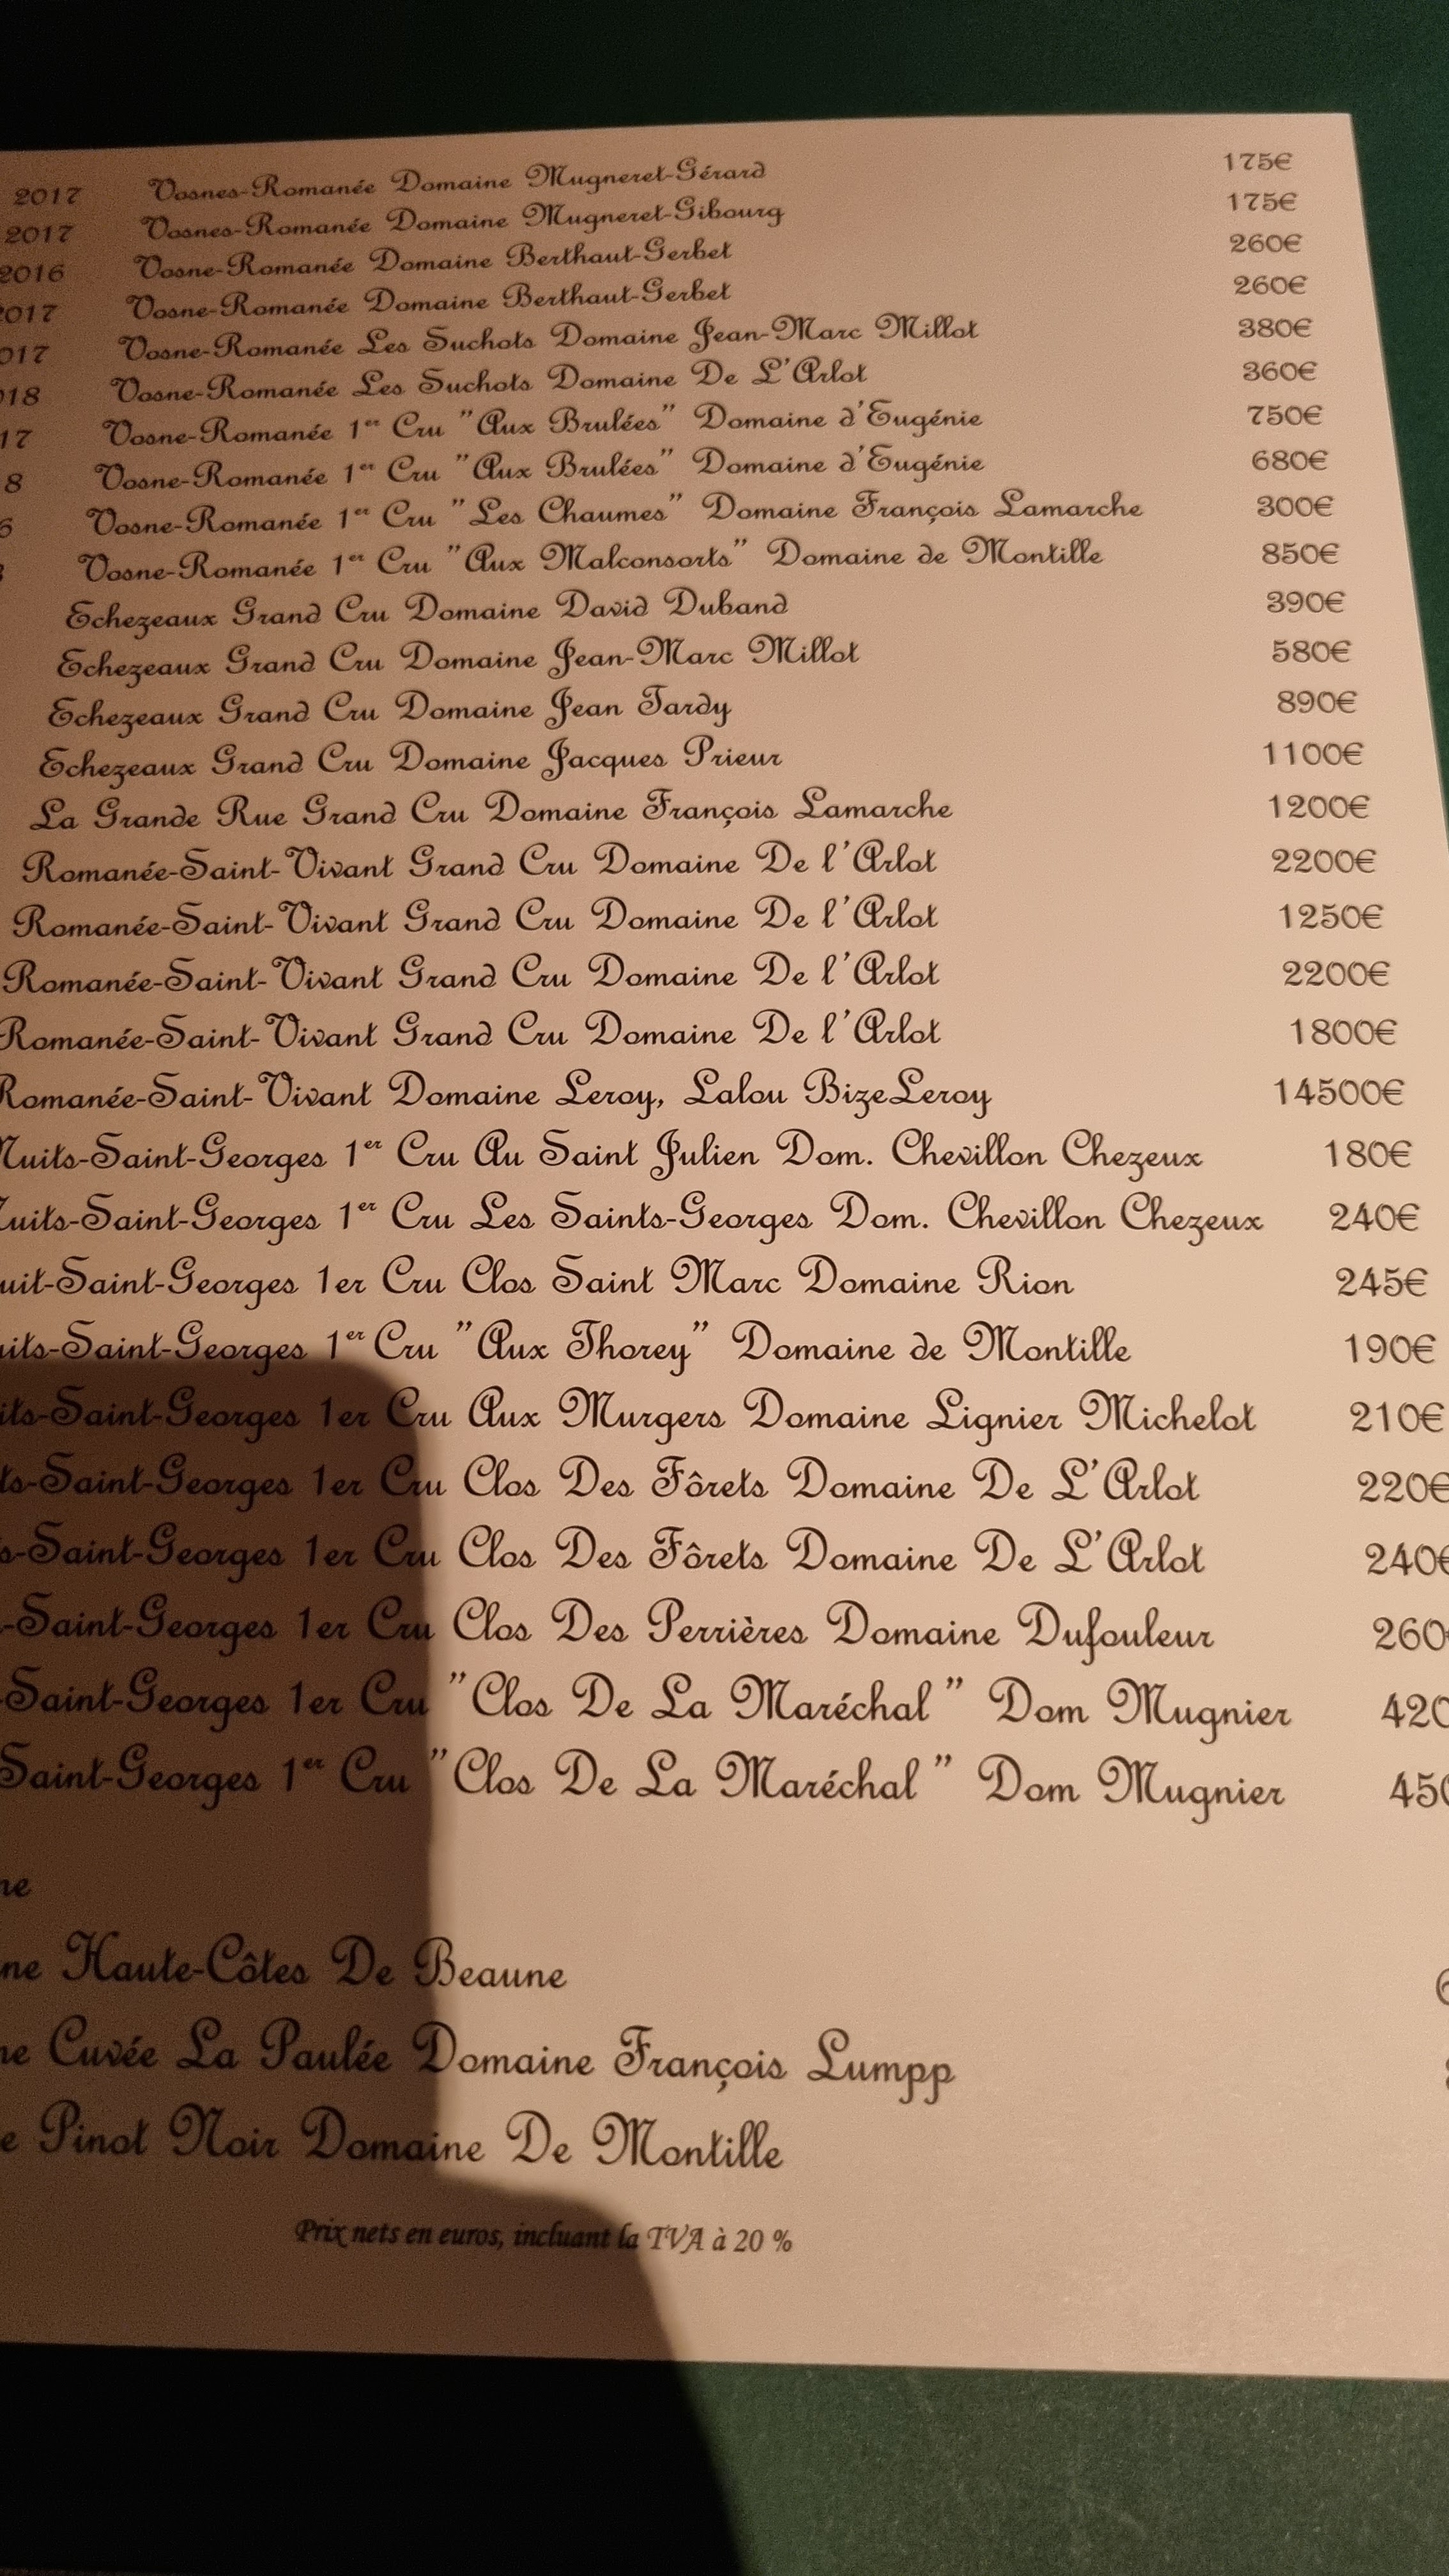 2017 Vosnes-Romanée Domaine Mugneret-Gérard 175€
2017 Vosnes-Romanée Domaine Mugneret-Gibourg 175€
2016 Vosne-Romanée Domaine Berthaut-Gerbet 260€
2017 Vosne-Romanée Domaine Berthaut-Gerbet 260€
017 Vosne-Romanée Les Suchots Domaine Jean-Marc Millot 380€
018 Vosne-Romanée Les Suchots Domaine De L'Arlot 360€
17 Vosne-Romanée 1er Cru "Aux Brulées" Domaine d'Eugénie 750€
8 Vosne-Romanée 1er Cru "Aux Brulées" Domaine d'Eugénie 680€
Vosne-Romanée 1er Cru "Les Chaumes" Domaine François Lamarche 300€
Vosne-Romanée 1er Cru "Aux Malconsorts" Domaine de Montille 850€
Echezeaux Grand Cru Domaine David Duband 390€
Echezeaux Grand Cru Domaine Jean-Marc Millot 580€
Echezeaux Grand Cru Domaine Jean Tardy 890€
Echezeaux Grand Cru Domaine Jacques Prieur 1100€
La Grande Rue Grand Cru Domaine François Lamarche 1200€
Romanée-Saint-Vivant Grand Cru Domaine De l'Arlot 2200€
Romanée-Saint-Vivant Grand Cru Domaine De l'Arlot 1250€
Romanée-Saint-Vivant Grand Cru Domaine De l'Arlot 2200€
Romanée-Saint-Vivant Grand Cru Domaine De l'Arlot 1800€
Romanée-Saint-Vivant Domaine Leroy, Lalou BizeLeroy 14500€
Nuits-Saint-Georges 1er Cru Au Saint Julien Dom. Chevillon Chezeux 180€
uits-Saint-Georges 1er Cru Les Saints-Georges Dom. Chevillon Chezeux 240€
uit-Saint-Georges 1er Cru Clos Saint Marc Domaine Rion 245€
uits-Saint-Georges 1er Cru "Aux Thorey" Domaine de Montille 190€
its-Saint-Georges 1er Cru Aux Murgers Domaine Lignier Michelot 210€
ts-Saint-Georges 1er Cru Clos Des Fôrets Domaine De L'Arlot 220€
s-Saint-Georges 1er Cru Clos Des Fôrets Domaine De L'Arlot 240€
-Saint-Georges 1er Cru Clos Des Perrières Domaine Dufouleur 260€
-Saint-Georges 1er Cru "Clos De La Maréchal" Dom Mugnier 420
Saint-Georges 1er Cru "Clos De La Maréchal" Dom Mugnier 450
ne
ne Haute-Côtes De Beaune
ne Cuvée La Paulée Domaine François Lumpp
e Pinot Noir Domaine De Montille
Prix nets en euros, incluant la TVA à 20 %